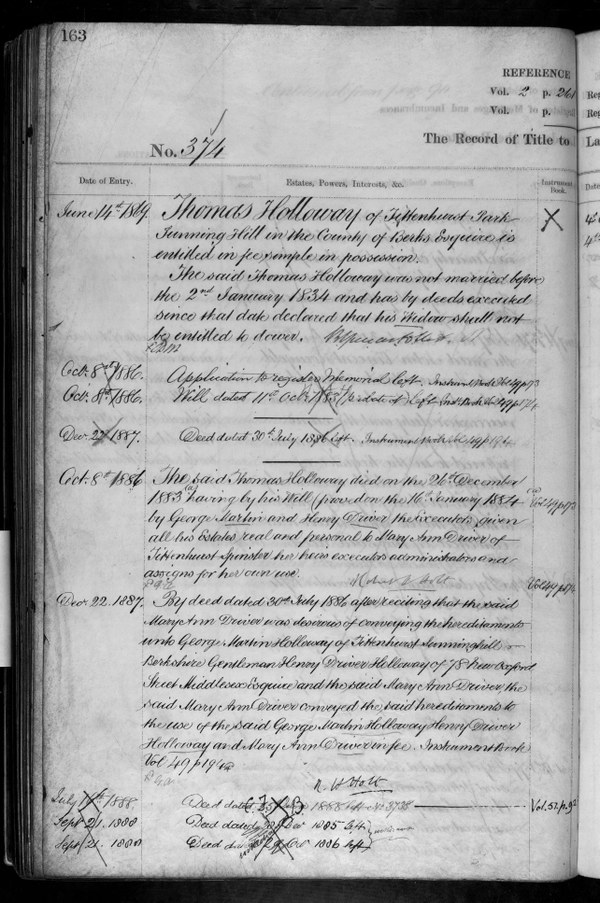 163
REFERENCE
Vol. 2 p. 261
Vol. p.
No. 374
The Record of Title to
Date of Entry.
Estates, Powers, Interests, &c.
Instrument Book.
June 14th 1869.
Thomas Holloway of Tittenhurst Park
Sunning Hill in the County of Berks Esquire is
entitled in fee simple in possession.
The said Thomas Holloway was not married before
the 2nd January 1834 and has by deeds executed
since that date declared that his Widow shall not
be entitled to dower.
Oct. 8th 1886.
Application to register Memorial left. Instrument Book Vol 49 p 173
Oct. 8th 1886.
Will dated 11th Oct. left Inst Book Vol 49 p 174
Decr 22 1887.
Deed dated 30th July 1886 left. Instrument Book Vol 49 p 194
Oct. 8th 1886
The said Thomas Holloway died on the 26th December
1883 having by his Will (proved on the 16th January 1884
by George Martin and Henry Driver the Executors) given
all his Estates real and personal to Mary Ann Driver of
Tittenhurst Spinster her heirs executors administrators and
assigns for her own use.
Vol 49 p 173
Robert Holt
Vol 49 p 174
Decr 22. 1887.
By deed dated 30th July 1886 after reciting that the said
Mary Ann Driver was desirous of conveying the hereditaments
unto George Martin Holloway of Tittenhurst Sunninghill
Berkshire Gentleman Henry Driver Holloway of 78 New Oxford
Street Middlesex Esquire and the said Mary Ann Driver, the
said Mary Ann Driver conveyed the said hereditaments to
the use of the said George Martin Holloway Henry Driver
Holloway and Mary Ann Driver in fee. Instrument Book
Vol 49 p 194
R H Holt
July 1888.
Deed dated 1888 left No 3738
Vol. 52. p. 92
Sept 21. 1888
Deed dated Decr 1885 left
Sept 21. 1888
Deed dated Decr 1886 left